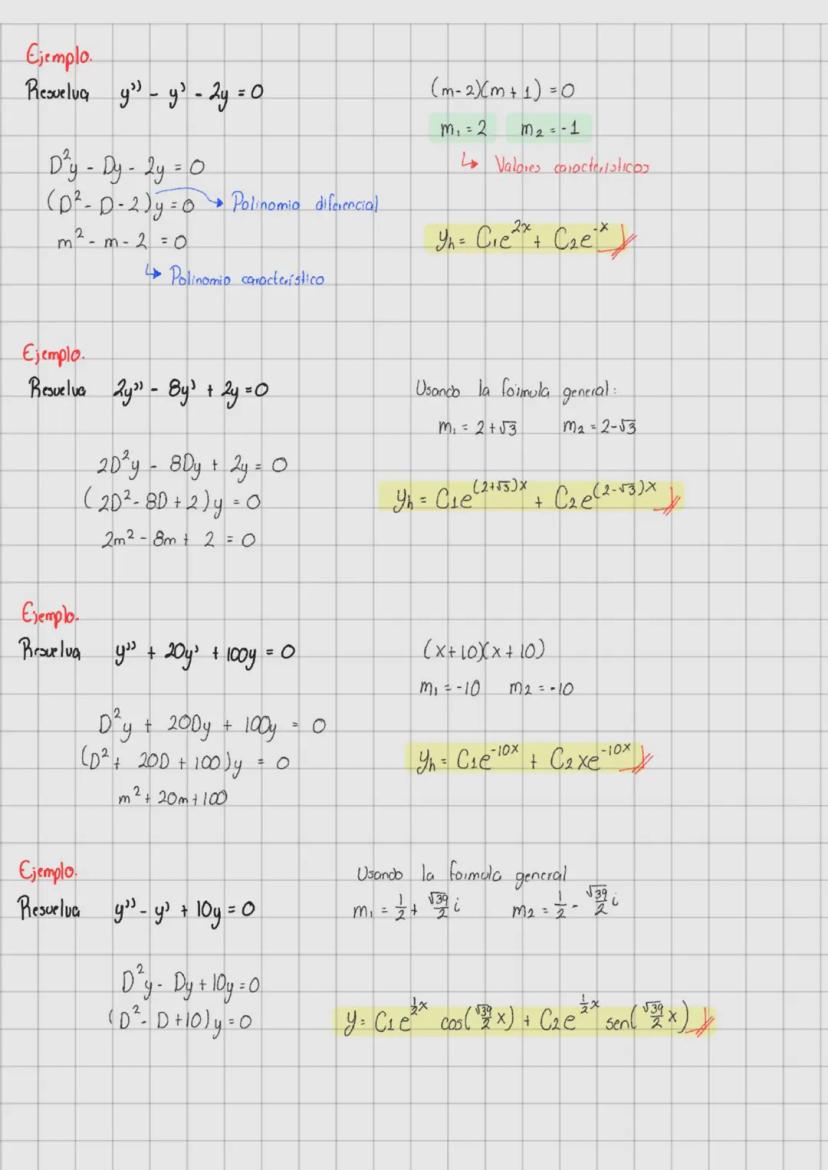 Ejemplo.
Resuelva y'' - y' - 2y = 0
D²y - Dy - 2y = 0
(D² - D - 2)y = 0 → Polinomio diferencial
m² - m - 2 = 0
↳ Polinomio característico
(m-2)(m+1) = 0
m₁ = 2 m₂ = -1
↳ Valores característicos
yₕ = C₁e^{2x} + C₂e^{-x}
Ejemplo.
Resuelva 2y'' - 8y' + 2y = 0
2D²y - 8Dy + 2y = 0
(2D² - 8D + 2)y = 0
2m² - 8m + 2 = 0
Usando la fórmula general:
m₁ = 2+√3 m₂ = 2-√3
yₕ = C₁e^{(2+√3)x} + C₂e^{(2-√3)x}
Ejemplo.
Resuelva y'' + 20y' + 100y = 0
D²y + 20Dy + 100y = 0
(D² + 20D + 100)y = 0
m² + 20m + 100
(x+10)(x+10)
m₁ = -10 m₂ = -10
yₕ = C₁e^{-10x} + C₂xe^{-10x}
Ejemplo.
Resuelva y'' - y' + 10y = 0
D²y - Dy + 10y = 0
(D² - D + 10)y = 0
Usando la fórmula general
m₁ = 1/2 + √39/2 i m₂ = 1/2 - √39/2 i
y = C₁e^{1/2 x} cos(√39/2 x) + C₂e^{1/2 x} sen(√39/2 x)